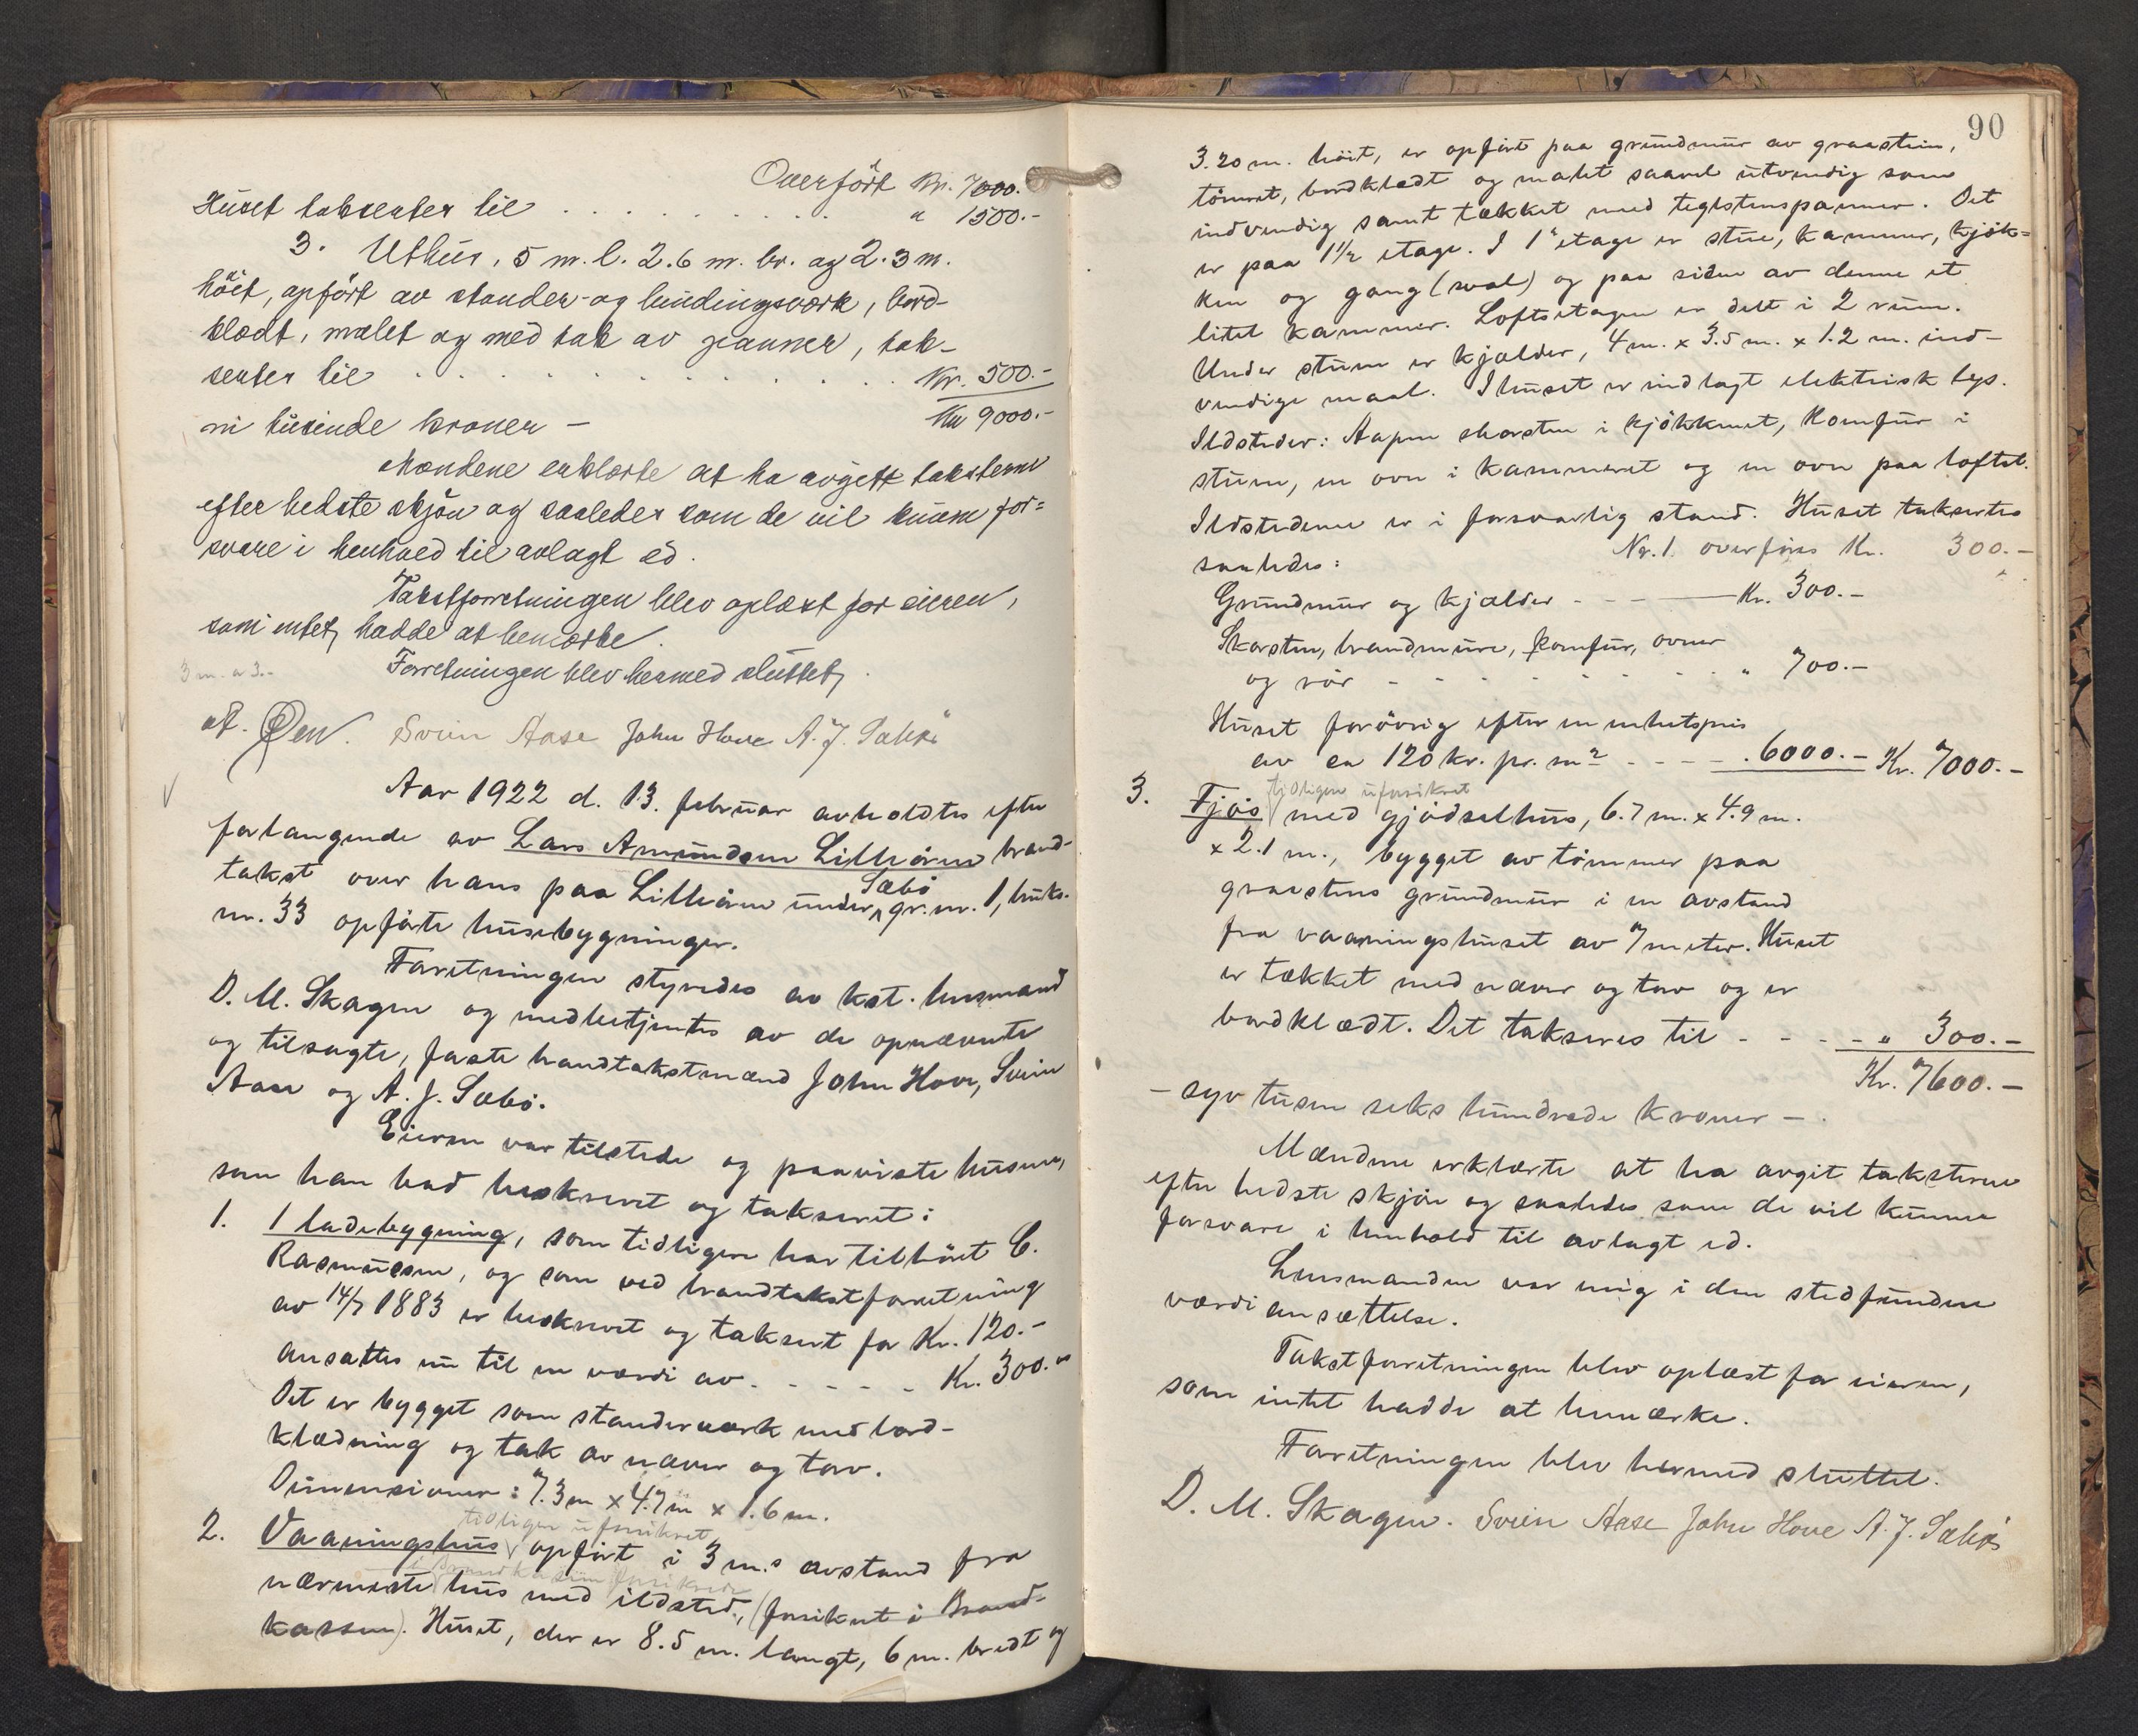 Overført Kr. 7000.-
Huset taksertes til . . . . . . . . . . " 1500.-
3. Uthus, 5 m. l. 2.6 m. br. og 2.3 m.
höit, opført av stender- og bindingsværk, bord-
klædt, malet og med tak av panner, tak-
sertes til . . . . . . . . . . . . . . . . Kr. 500.-
Kr 9000.-
ni tusinde kroner -
Mændene erklærte at ha avgitt taksterne
efter bedste skjøn og saaledes som de vil kunne for=
svare i henhold til avlagt ed.
Takstforretningen blev oplæst for eieren,
som intet hadde at bemærke.
3 m. a 3.-
Forretningen blev hermed sluttet.
Øen. Svein Aase John Hove A. J. Sæbø
Aar 1922 d. 13. februar avholdtes efter
forlangende av Lars Amundsen Lilleören brand-
takst over hans paa Lilleören under Sæbö gr. nr. 1, bruks.
nr. 33 opförte husebygninger.
Forretningen styredes av kst. lensmand
D. M. Skagen og medbetjentes av de opnævnte
og tilsagte, faste brandtakstmænd John Hove, Svein
Aase og A. J. Sæbö.
Eieren var tilstede og paaviste husene,
som han bad beskrevet og taksert:
1. 1 ladebygning, som tidligere har tilhört C.
Rasmussen, og som ved brandtakstforretning
av 14/7 1883 er beskrevet og taksert for Kr. 120.-
ansattes nu til en værdi av . - - - - . Kr. 300.-
Det er bygget som stenderværk med bord-
klædning og tak av næver og torv.
Dimensioner: 7.3 m x 4.7 m x 1.6 m.
tidligere uforsikret
2. Vaaningshus opfört i 3 m.s avstand fra
i Brandkassen forsikrede
nærmeste hus med ildsted, (forsikret i Brand-
kassen). Huset, der er 8.5 m. langt, 6 m. bredt og
90
3.20 m. höit, er opfört paa grundmur av graasten,
tömret, bordklædt og malet saavel utvendig som
indvendig samt tækket med teglstenspanner. Det
er paa 1 1/2 etage. I 1ste etage er stue, kammer, kjök=
ken og gang (sval) og paa siden av denne et
litet kammer. Loftsetagen er delt i 2 rum.
Under stuen er kjælder, 4 m. x 3.5 m. x 1.2 m. ind-
vendige maal. I huset er indlagt elektrisk lys.
Ildsteder: Aapen skorsten i kjökkenet, komfur i
stuen, en ovn i kammeret og en ovn paa loftet.
Ildstederne er i forsvarlig stand. Huset taksertes
saaledes: Nr. 1. overföres Kr. 300.-
Grundmur og kjælder - - - Kr. 300.-
Skorsten, brandmure, komfur, ovner
og rör - - - - - - - - " 700.-
Huset forövrig efter en enhetspris
av ca 120 kr. pr. m2 - - - - . 6000.- Kr. 7000.-
tidligere uforsikret
3. Fjös med gjödselhus, 6.7 m. x 4.9 m.
x 2.1 m., bygget av tömmer paa
graastens grundmur i en avstand
fra vaaningshuset av 7 meter. Huset
er tækket med næver og torv og er
bordklædt. Det takseres til - - - - " 300.-
Kr. 7600.-
- syv tusen seks hundrede kroner -.
Mændene erklærte at ha avgit taksterne
efter bedste skjön og saaledes som de vil kunne
forsvare i henhold til avlagt ed.
Lensmanden var enig i den stedfundne
værdiansættelse.
Takstforretningen blev oplæst for eieren,
som intet hadde at bemærke.
Forretningen blev hermed sluttet.
D. M. Skagen. Svein Aase John Hove A. J. Sæbø